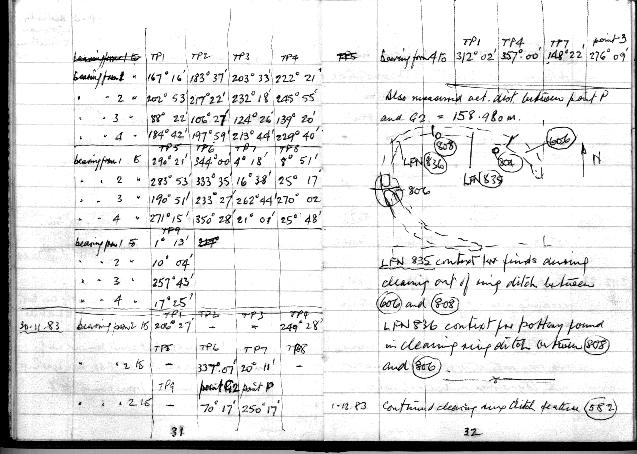 bearing from 1 to TP1 TP2 TP3 TP4
bearing from 1 " 167° 16' 183° 37' 203° 33' 222° 21'
" " 2 " 202° 53' 217° 22' 232° 18' 245° 55'
" " 3 " 88° 22' 106° 27' 124° 26' 139° 20'
" " 4 " 184° 42' 197° 59' 213° 44' 229° 40'
TP5 TP6 TP7 TP8
bearing from 1 to 290° 21' 344° 00' 4° 18' 8° 51'
" " 2 " 283° 53' 333° 35' 16° 38' 25° 17'
" " 3 " 190° 51' 233° 27' 262° 44' 270° 02
" " 4 " 271° 15' 350° 28' 21° 07' 25° 48'
TP9
bearing from 1 to 1° 13'
" " 2 " 10° 04'
" " 3 " 257° 43'
" " 4 " 17° 25'
TP1 TP2 TP3 TP4
30.11.83 bearing from 2 to 206° 27' - - 249° 28'
TP5 TP6 TP7 TP8
" " 2 to - 337° 07' 20° 11' -
TP9 point G2 point P
" " 2 to - 70° 17' 250° 17'
31
TP5
TP1 TP4 TP7 point 3
bearing from 4 to 312° 02' 357° 00' 148° 22' 276° 09'
Also measured act. dist. between point P
and G2 = 158.980m.
808
606
LFN 836
801
N
LFN 835
806
LFN 835 context for finds during
cleaning out of ring ditch between
606 and 808
LFN 836 context for pottery found
in cleaning ring ditch between 808
and 806.
1-12.83 Continued cleaning ring ditch feature 582
32